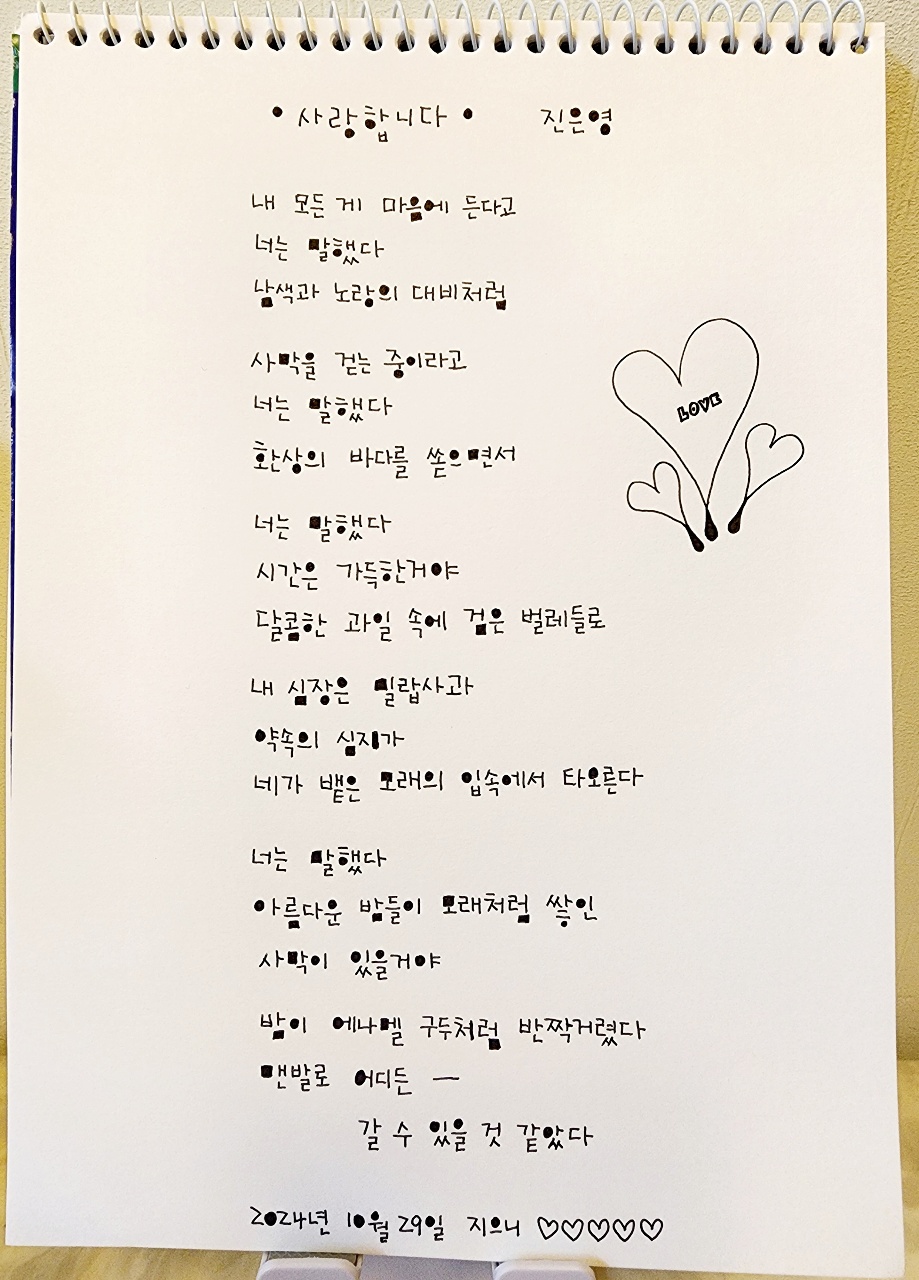 • 사랑합니다 • 진은영
내 모든 게 마음에 든다고
너는 말했다
남색과 노랑의 대비처럼
사막을 걷는 중이라고
너는 말했다
환상의 바다를 쏟으면서
LOVE
너는 말했다
시간은 가득한거야
달콤한 과일 속에 검은 벌레들로
내 심장은 밀랍사과
약속의 심지가
네가 뱉은 모래의 입속에서 타오른다
너는 말했다
아름다운 밤들이 모래처럼 쌓인
사막이 있을거야
밤이 에나멜 구두처럼 반짝거렸다
맨발로 어디든 —
갈 수 있을 것 같았다
2024년 10월 29일 지으니 ♡♡♡♡♡